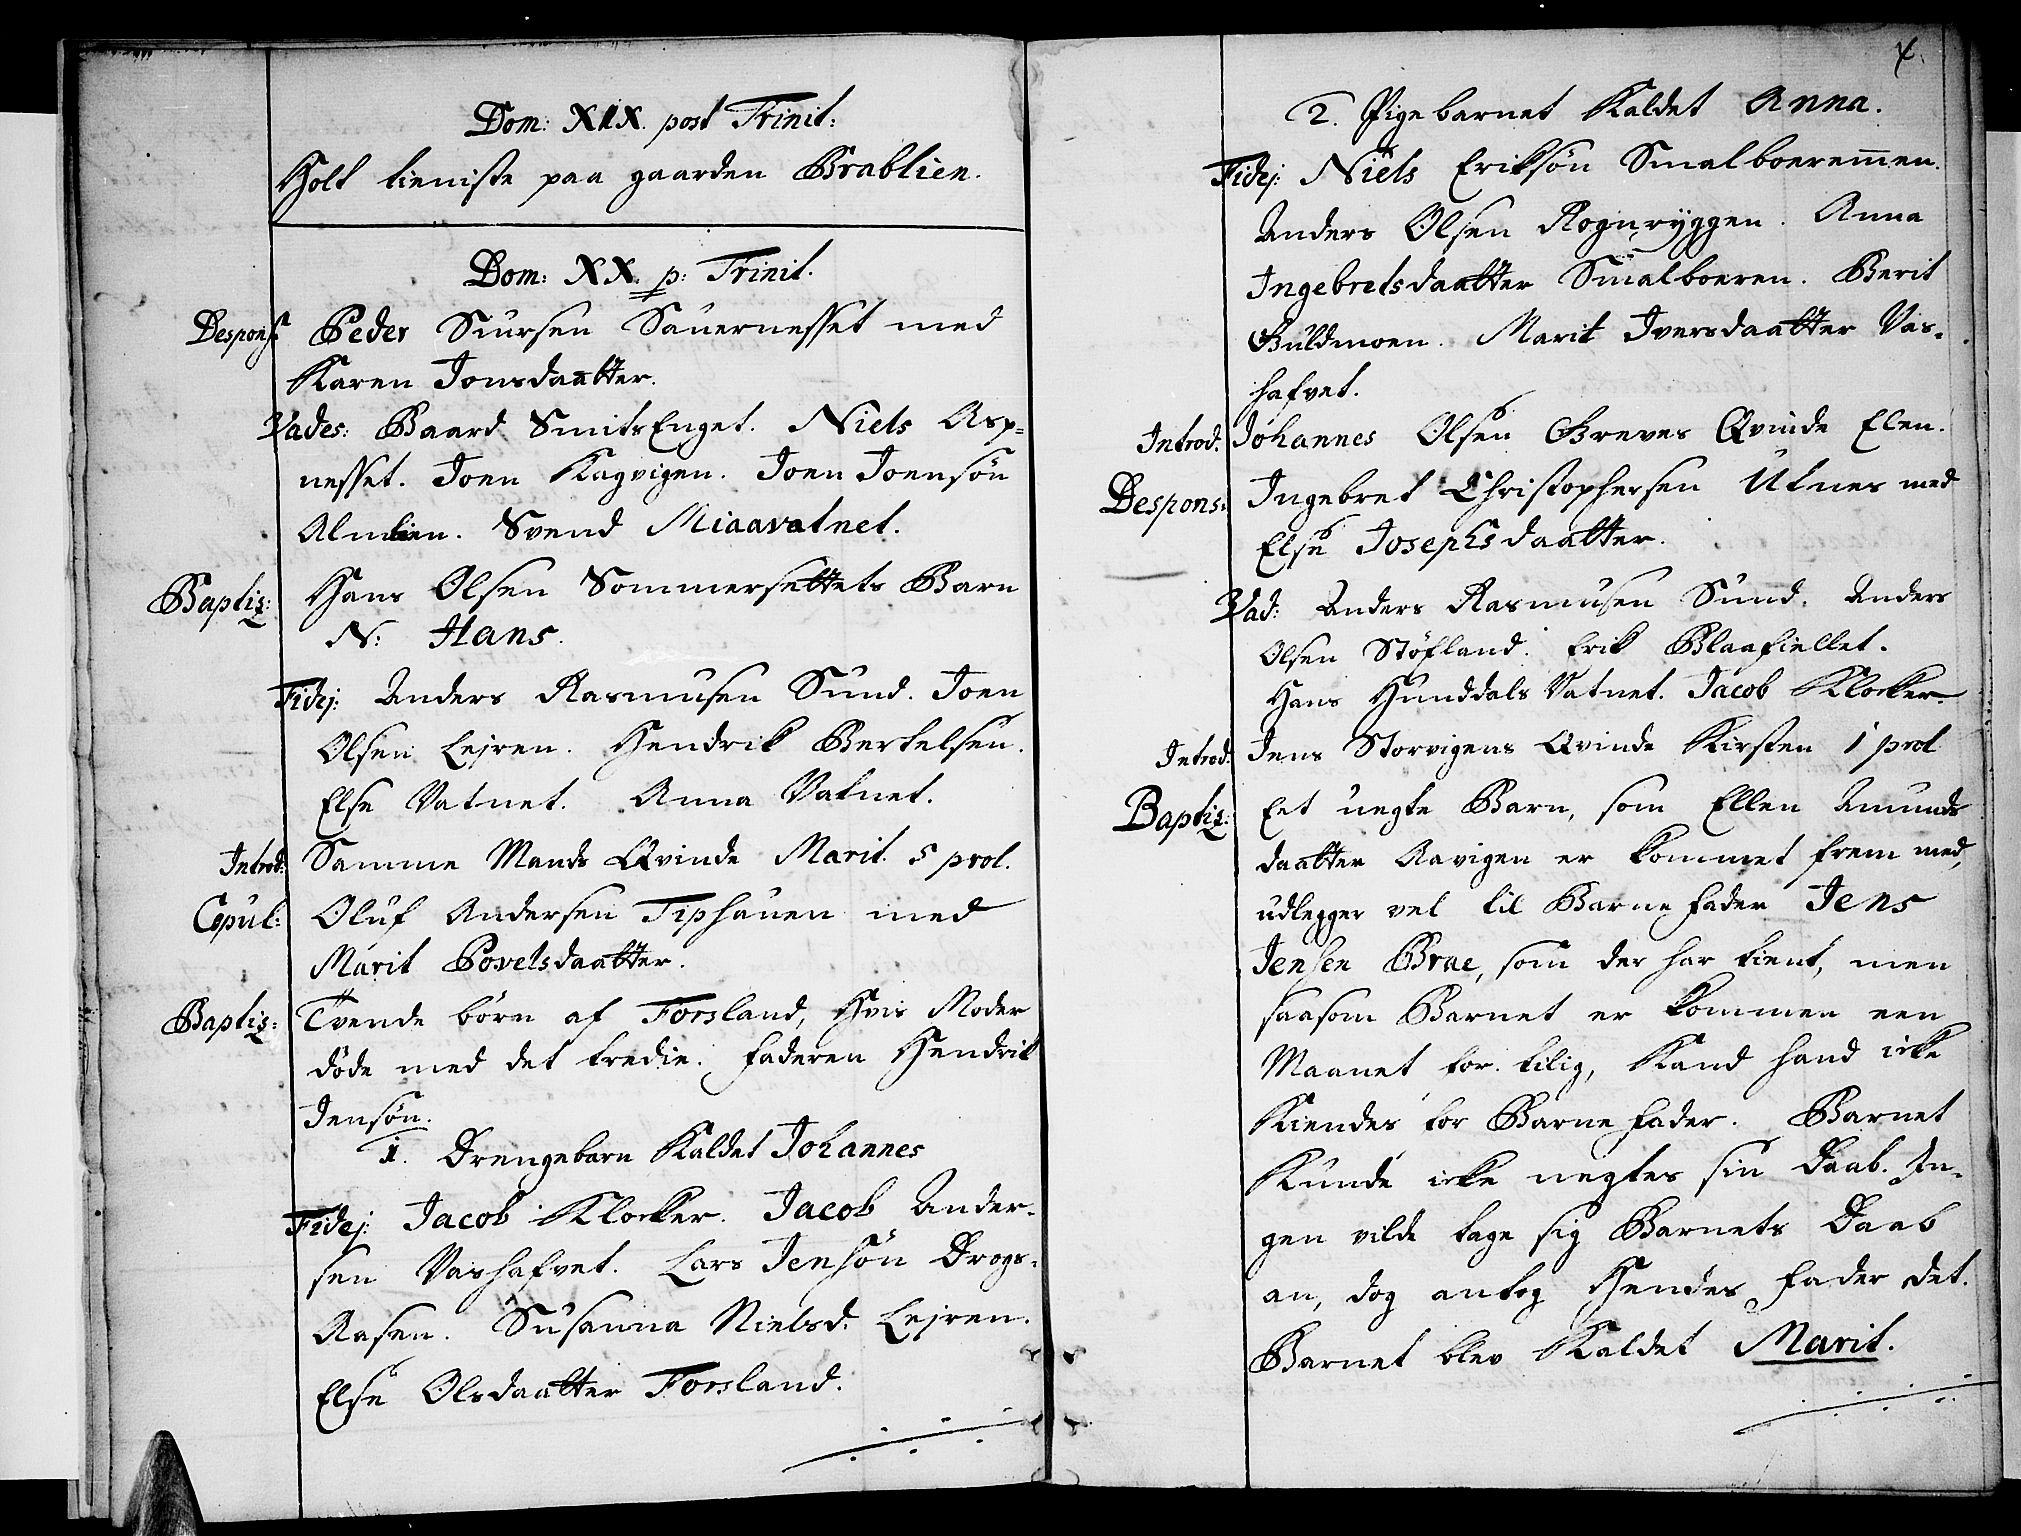 Dom: XIX. post Trinit:
Holt tieniste paa gaarden Brablien.
Dom: XX. p: Trinit.
Despons: Peder Siursen Sauernesset med
Karen Jonsdaatter.
Vades: Baard SmitsEnget. Niels Asp=
nesset. Joen Kagvigen. Joen Joensøn
Almlien. Svend Miaavatnet.
Baptiz: Hans Olsen Sommersettets Barn
N: Hans.
Fidej: Anders Rasmusen Sund. Joen
Olsen Lejren. Hendrik Bertelsen.
Else Vatnet. Anna Vatnet.
Introd: Samme Mands Qvinde Marit. 5 prol.
Copul: Oluf Andersen Tiphauen med
Marit Povelsdaatter.
Baptiz: Tvende børn af Forsland, Hvis Moder
døde med det tredie. Faderen Hendrik
Jensøn.
1. Drengebarn Kaldet Johannes
Fidej: Jacob Klocker. Jacob Ander-
sen Vashafvet. Lars Jensøn Drogs-
Aasen. Susanna Nielsd. Lejren.
Else Olsdaatter Forsland.
2. Pigebarnet Kaldet Anna.
Fidej: Niels Eriksøn Smalboeremmen.
Anders Olsen Rognryggen. Anna
Ingebretsdaatter Smalboeren. Berit
Guldmoen. Marit Iversdaatter Vas-
hafvet.
Introd. Johannes Olsen Greves Qvinde Elen.
Despons: Ingebret Christophersen Utnes med
Else Josephsdaatter.
Vad: Anders Rasmusen Sund. Anders
Olsen Støfland. Erik Blaafiellet.
Hans Hunddals Vatnet. Jacob Klocker.
Introd. Jens Storvigens Qvinde Kirsten 1 prol
Baptiz: Eet uegte Barn, som Ellen Amunds
daatter Aavigen er kommet frem med,
udlegger vel til Barnefader Jens
Jensen Brae, som der har tient, men
saasom Barnet er kommen een
Maanet for tilig, Kand hand icke
Kiendes for Barnefader. Barnet
Kunde icke negtes sin Daab. In-
gen vilde tage sig Barnets Daab
an, dog antog Hendes Fader det.
Barnet blev Kaldet Marit.